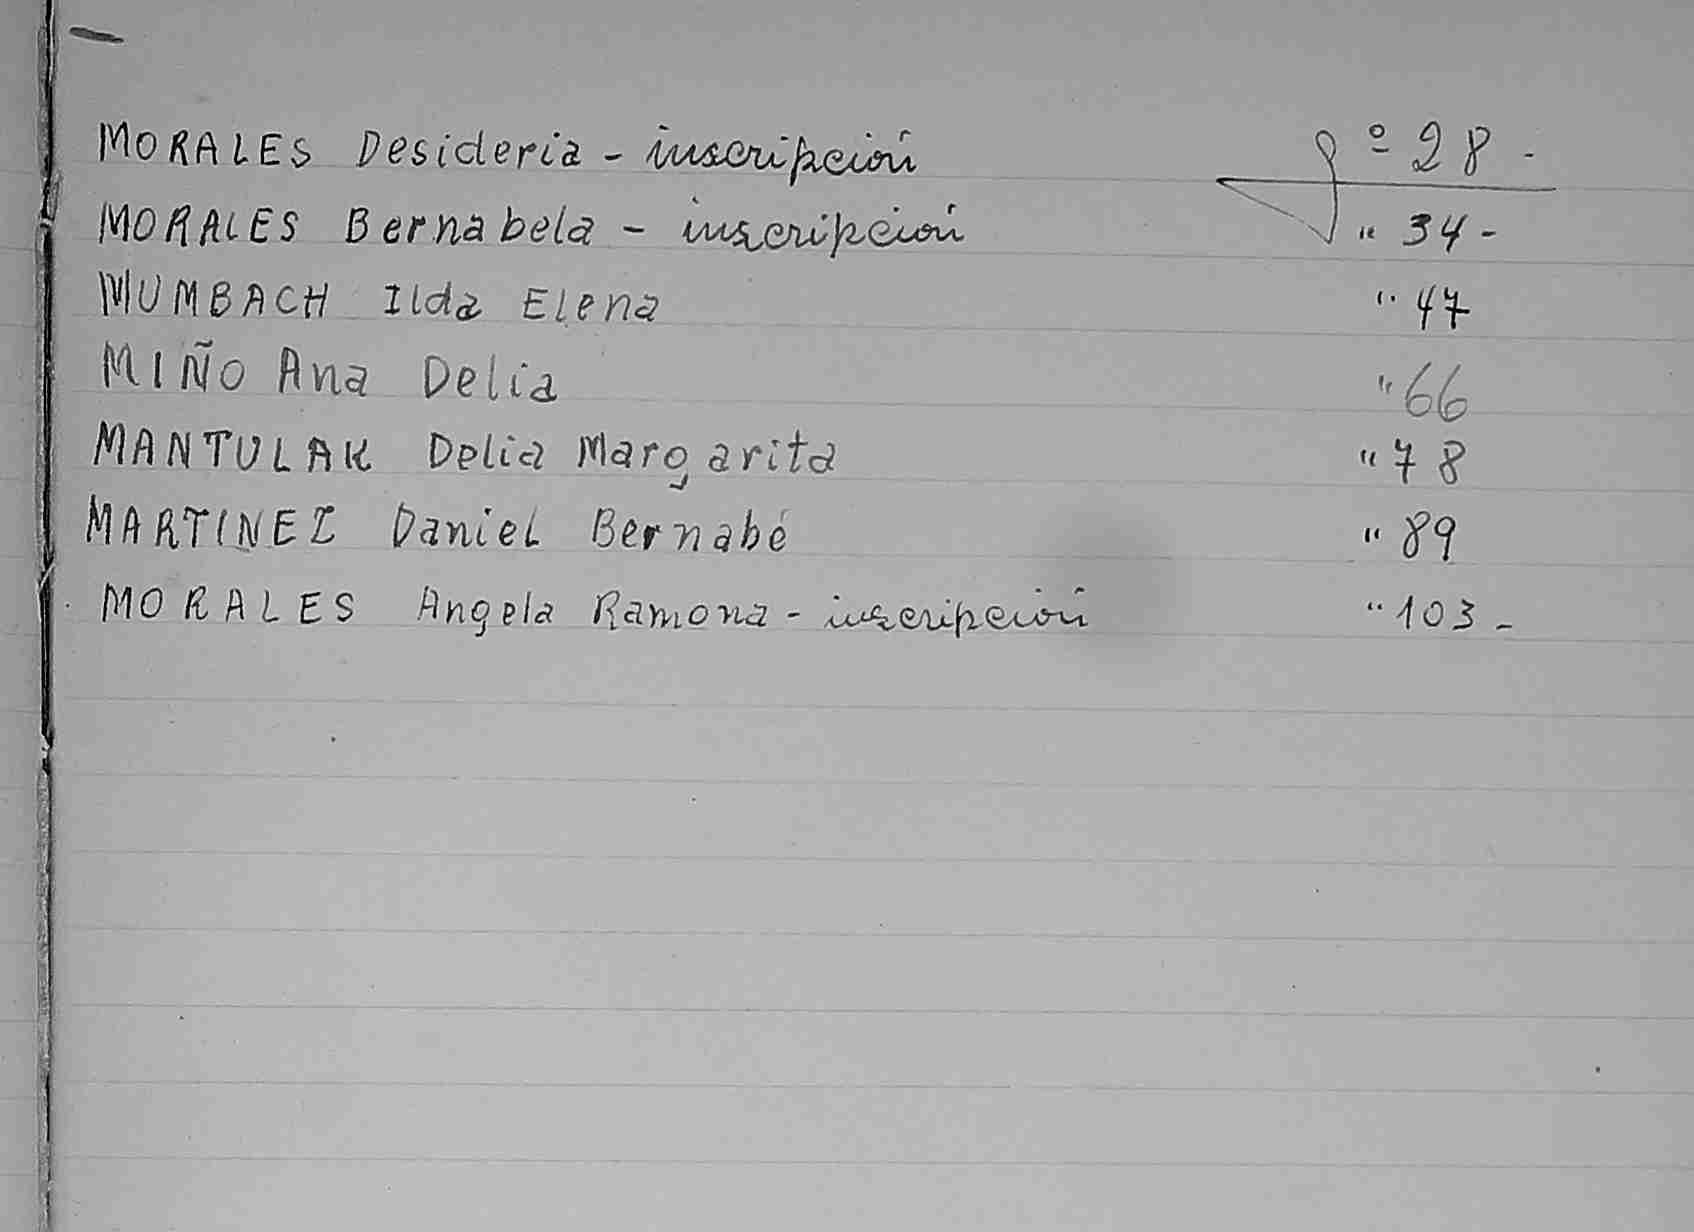 MORALES Desideria - inscripción fº 28 -
MORALES Bernabela - inscripción " 34 -
MUMBACH Ilda Elena " 47
MIÑO Ana Delia " 66
MANTULAK Delia Margarita " 78
MARTINEZ Daniel Bernabé " 89
MORALES Angela Ramona - inscripción " 103 -